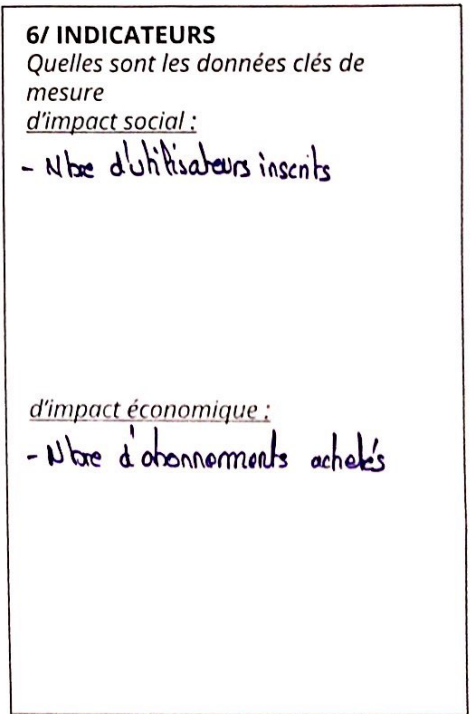 6/ INDICATEURS
Quelles sont les données clés de
mesure
d'impact social :
- Nbre d'utilisateurs inscrits
d'impact économique :
- Nbre d'abonnements achetés